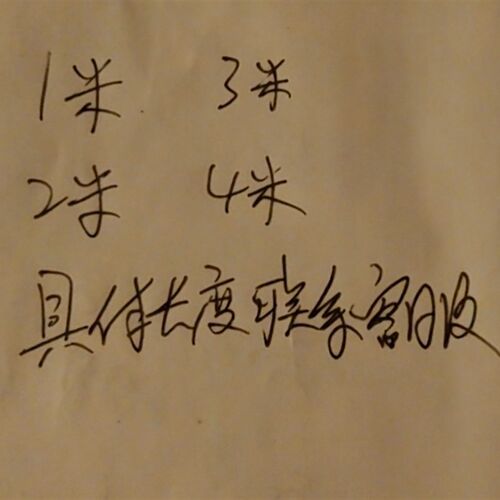 1米 3米
2米 4米
具体长度联系客服